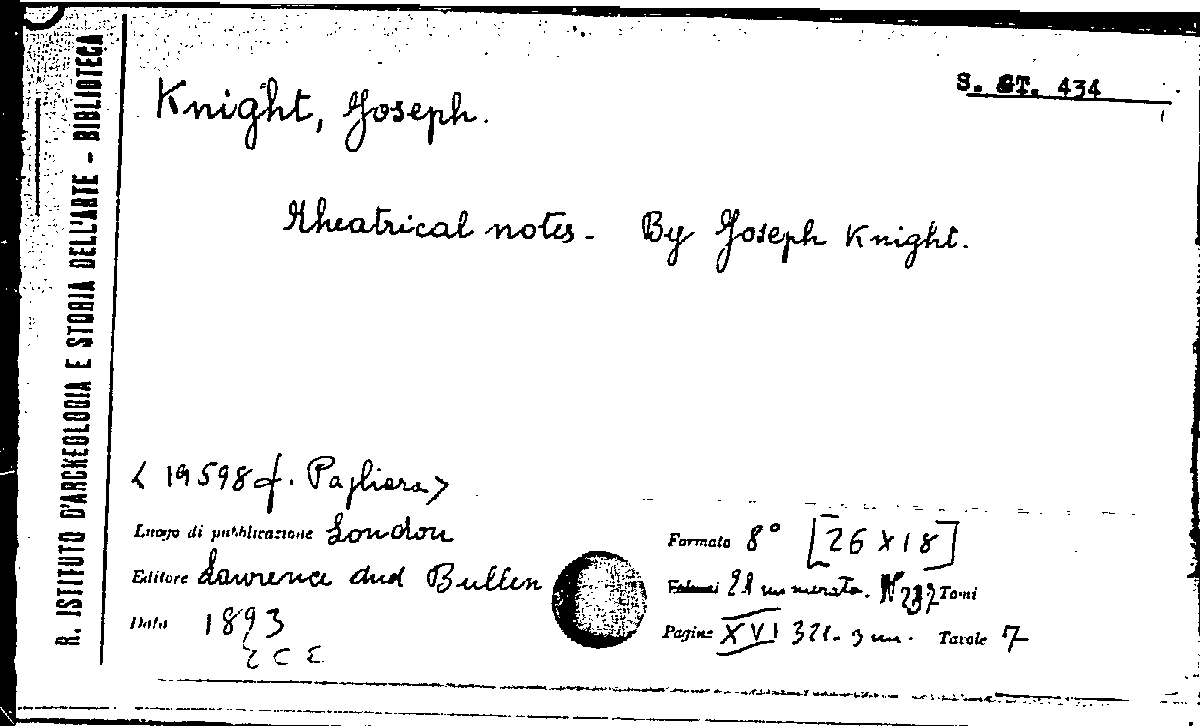 S. ST. 434
Knight, Joseph.
Theatrical notes. - By Joseph Knight.
R. ISTITUTO D'ARCHEOLOGIA E STORIA DELL'ARTE - BIBLIOTECA
< 19598 f. Pagliara >
Luogo di pubblicazione London
Editore Lawrence and Bullen
Data 1893
Formato 8° [26 X 18]
Volumi numerato. N 237 Tomi
Pagine XVI 321. 3 nn. Tavole 7